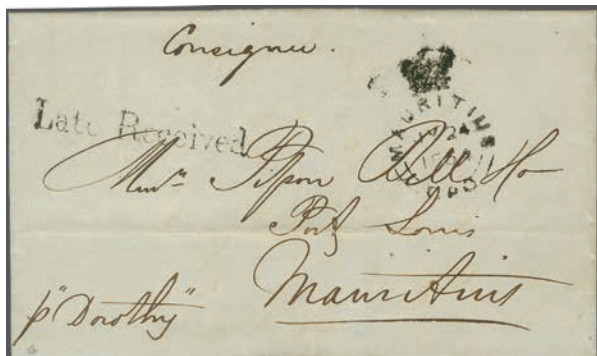 Consignee.
Late Received
MAURITIUS
24
GPO
Messrs Pipon Bell & Co
Port Louis
Mauritius
p "Dorothy"